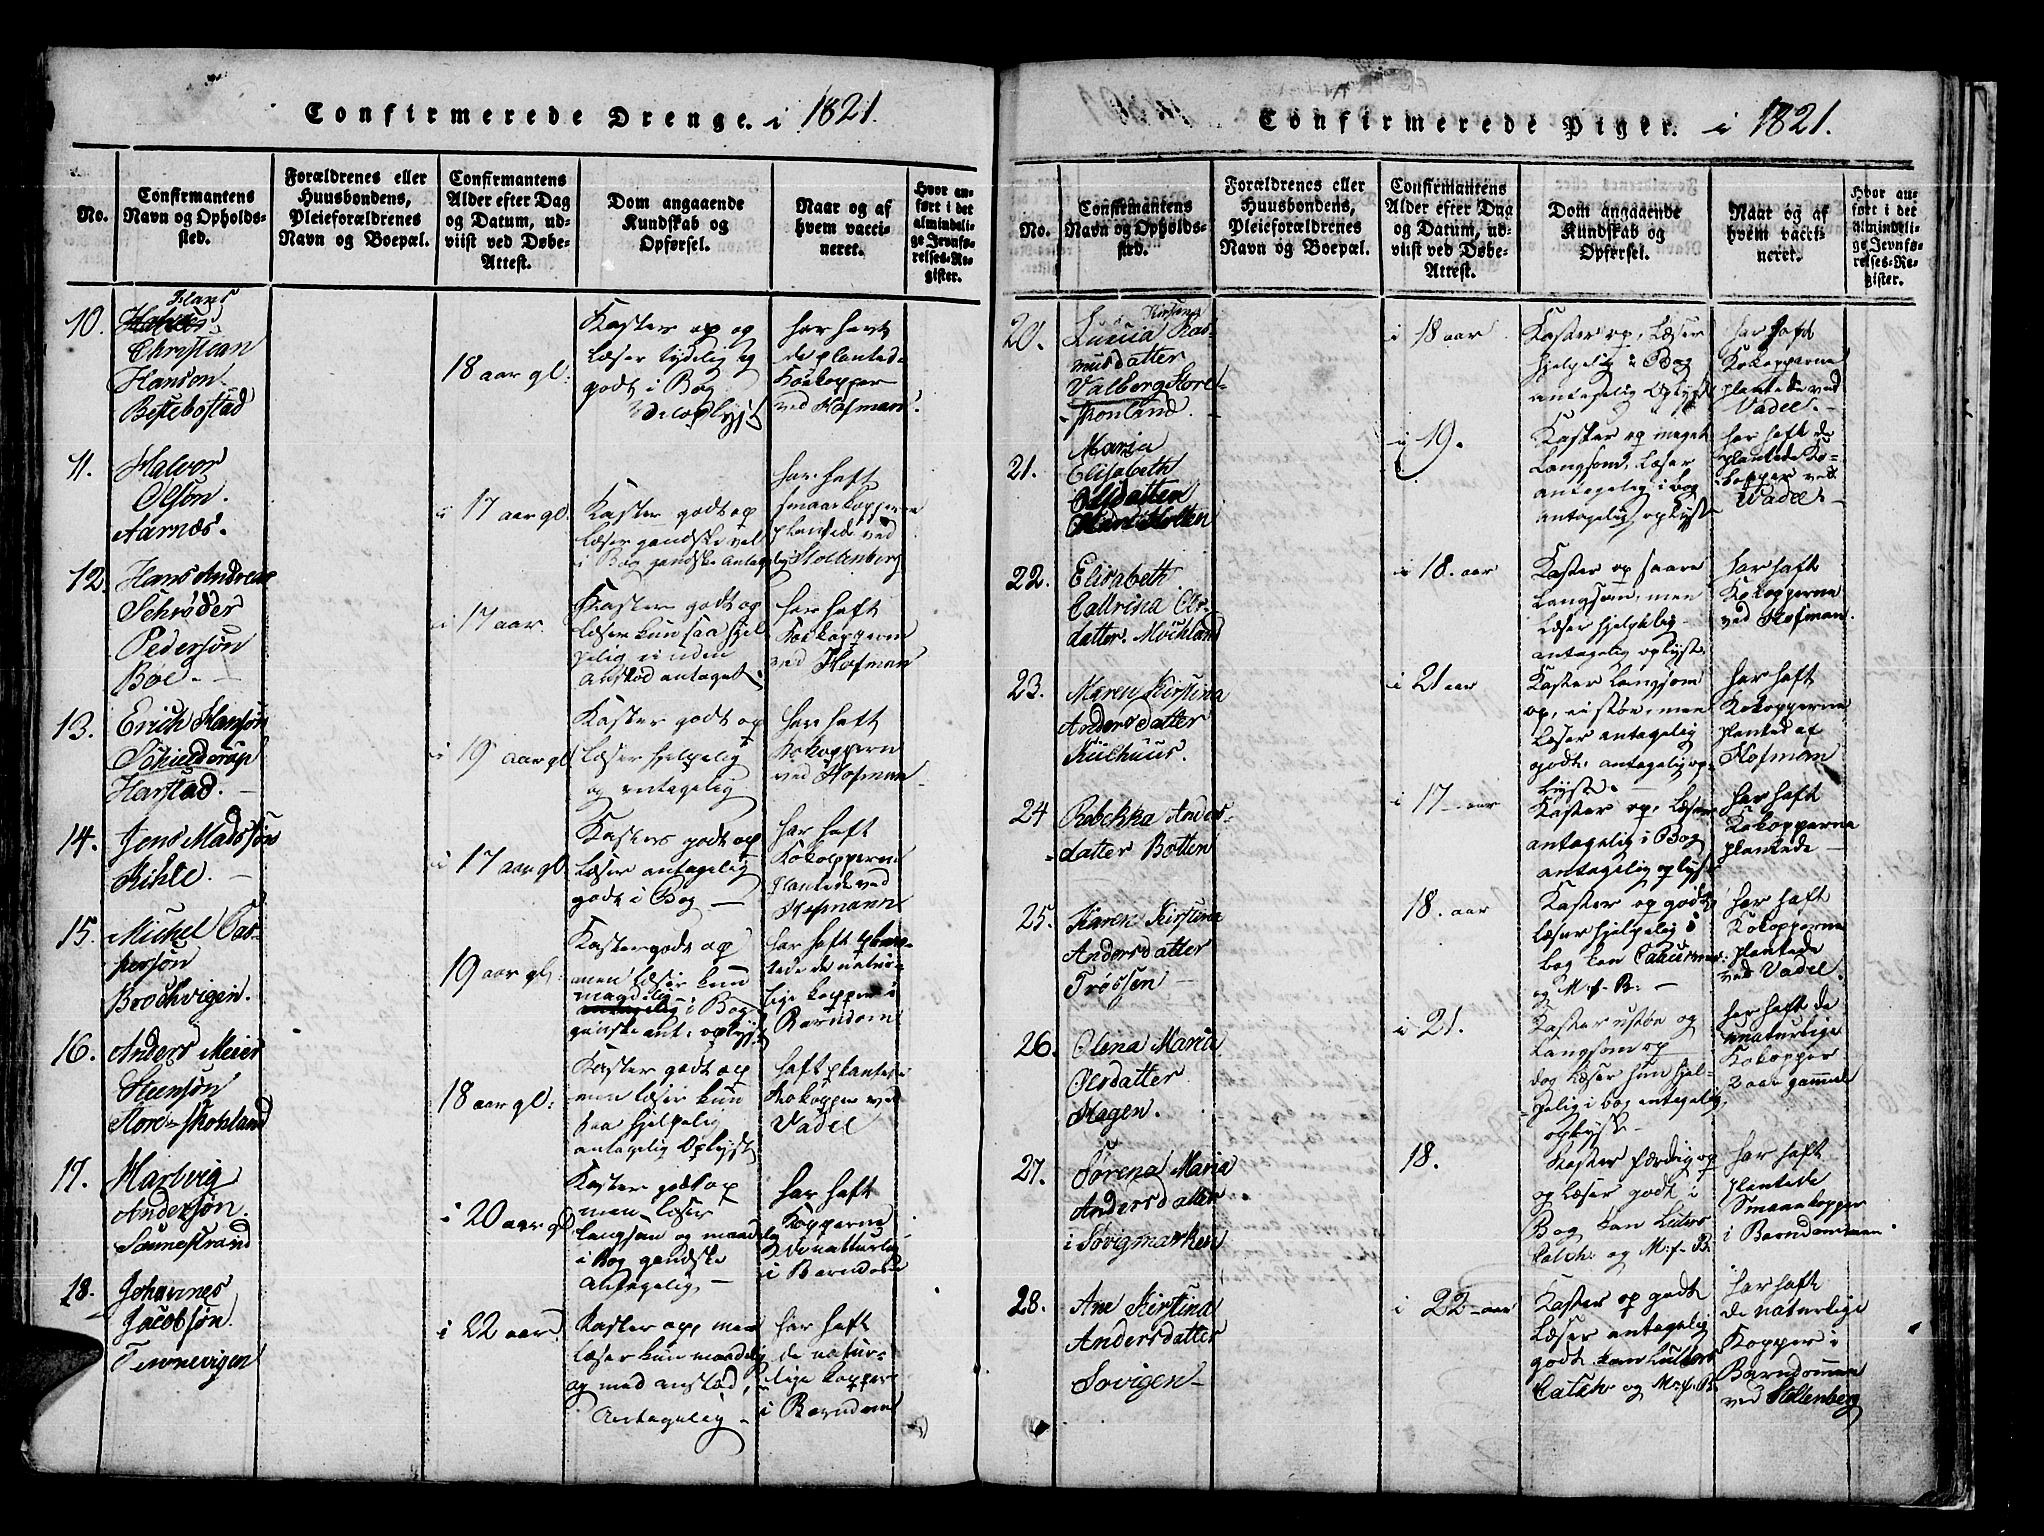 Confirmerede Drenge. i 1821.
No.
Confirmantens
Navn og Opholds-
sted.
Forældrenes eller
Huusbondens,
Pleieforældrenes
Navn og Boepæl.
Confirmantens
Alder efter Dag
og Datum, ud-
viist ved Døbe-
Attest.
Dom angaaende
Kundskab og
Opførsel.
Naar og af
hvem vacci-
neret.
Hvor an-
ført i det
almindeli-
ge Jevnfø-
relses-Re-
gister.
10.
Hans
Christian
Hanson
18 aar gl:
Kaster op og
læser tydelig og
godt i Bog
har havt
de plantede
Koekopper
ved Hofman.
11.
Halvor
Olsøn.
Aarnæs.
i 17 aar gl.
Kaster godt op
læser gandske vel
i Bog gandske antagelig
har haft
smaaekopperne
plantede ved
Stoltenberg
12.
Hans Andreas
Schrøder
Pedersøn
Böe.
i 17 aar.
Kaster godt op
læser kun saa hjel
pelig ei uden
anstød antaget
har haft
Koekopperne
ved Hofman
13.
Erich Hansøn
Schielderup
Harstad.
i 19 aar gl
Kaster godt op
læser hjelpelig
og antagelig
har haft
Kokopperne
ved Hofman
14.
Jens Madssøn
Kihle.
i 17 aar gl.
Kasters godt op
læser antagelig
godt i Bog
har haft
Kokopperne
plantede ved
Hofmann
15.
Michel Cas-
persøn
Brochvigen.
19 aar gl:
Kaster godt op
men læser kun
maadelig
antagelig i Bog
ganske ant: oplyst
har haft
tede de natur-
lige kopper i
Barndom
16.
Anders Meier
Steensøn
Store-Skohland
18 aar gl:
Kaster godt op
men læser kun
saa hjelpelig
antagelig Oplyst
haft plantede
Kokopper ved
Vadel
17.
Hartvig
Andersøn.
Saunestrand
i 20 aar gl
Kaster godt op
men læser
langsom og maadelig
i Bog gandske
antagelig
har haft
Kopperne
de naturlig
i Barndom
18.
Johannes
Jacobsøn.
Tennevigen
i 22 aar.
Kaster op men
læser kun maadelig
og med anstød,
Antagelig
har haft
de natur-
lige kopper
i Barndom
Confirmerede Piger. i 1821.
No.
Confirmantens
Navn og Opholds-
sted.
Forældrenes eller
Huusbondens,
Pleieforældrenes
Navn og Boepæl.
Confirmantens
Alder efter Dag
og Datum, ud-
viist ved Døbe-
Attest.
Dom angaaende
Kundskab og
Opførsel.
Naar og af
hvem vacci-
neret.
Hvor an-
ført i det
almindeli-
ge Jevnfø-
relses-Re-
gister.
20.
Lucia Ras-
musdatter
Valberg Store-
i 18 aar
Kaster op, læser
hjelpelig i Bog
antagelig Oplyst
har haft
Kokopperne
plantede ved
Vadel.
21.
Maria
Elisabeth
Olsdatter
i 19.
Kaster op meget
langsom, læser
antagelig i bog
antagelig oplyst
har haft de
plantede Ko-
kopper ved
Wadel.
22.
Elisabeth
Cathrina Ols-
datter. Möckland
i 18. aar
Kaster op saare
langsom, men
læser hjelpelig
antagelig oplyst.
har haft
Kokopperne
ved Hofman.
23.
Maren Kirstina
Andersdatter
Kiilhuus.
i 21 aar
Kaster langsom
op, ei støe, men
læser antagelig
godt. antagelig op-
lyst.
har haft
Kokopperne
planted af
Hofman
24
Rebekka Anders-
datter Botten
i 17 aar
Kaster op, læser
antagelig i Bog
antagelig oplyst
har haft
Kokopperne
plantede
25.
Karen Kirstina
Andersdatter
Trössen
18. aar
Kaster op godt,
læser hjelpelig i
bog kan
og M. f. B:
har haft
Kokopperne
plantede
ved Vadel.
26.
Olena Maria
Olsdatter
Hagen.
i 21.
Kaster ustøe og
langsom op
dog læser hun hjel-
pelig i bog antagelig
oplyst
har haft de
unaturlige
Kokopper
2 aar gammel
27.
Sørena Maria
Andersdatter
i Søvigmarken
18.
Kaster færdig op
og læser godt i
Bog, kan Luters
Catch: og M. f. B.
har haft
plantede
Smaaekopper
i Barndommen
28.
Ane Kirstina
Andersdatter
Sovigen
i 22 aar
Kaster op godt
læser antagelig
godt. kan Luthers
Catch: og M. f. B.
har haft
de naturlige
Kopper i
Barndommen
ved Stoltenberg